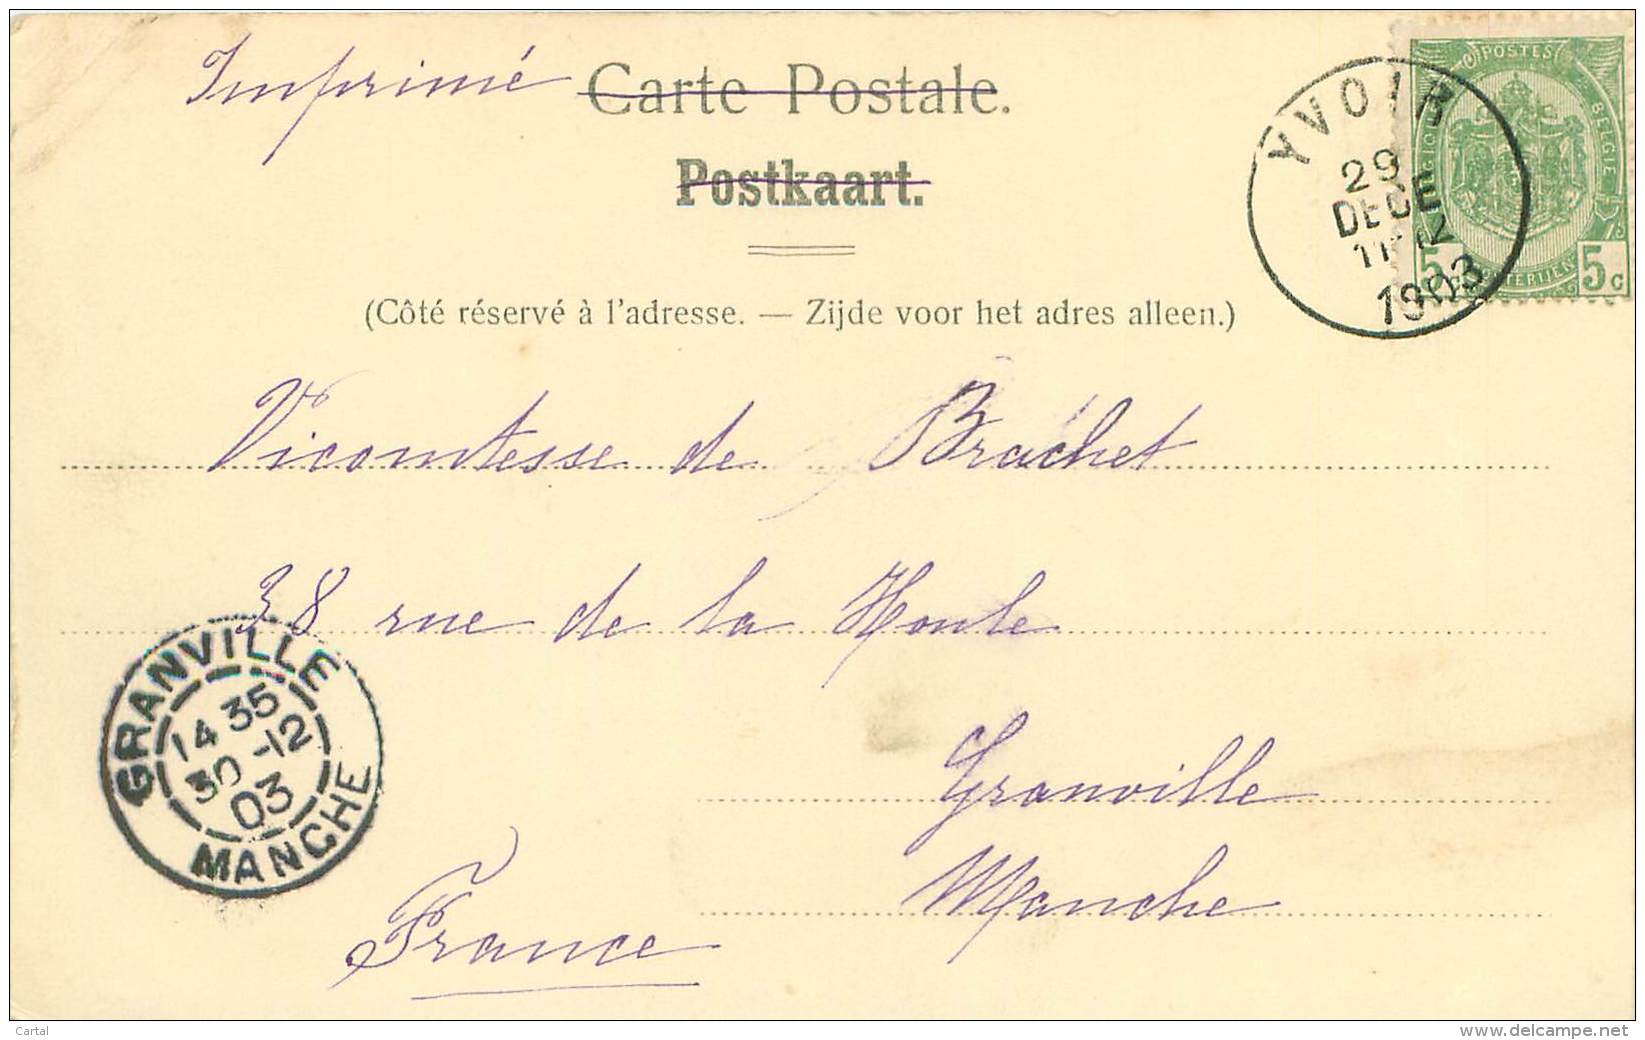 Imprimé Carte Postale.
Postkaart.
(Côté réservé à l'adresse. — Zijde voor het adres alleen.)
POSTES
BELGIE
5 5c
YVOIR
29
DECE
11-12
1903
Vicomtesse de Brachet
38 rue de la Houle
Granville
Manche
France
GRANVILLE
14 35
30 -12
03
MANCHE
Cartal
www.delcampe.net